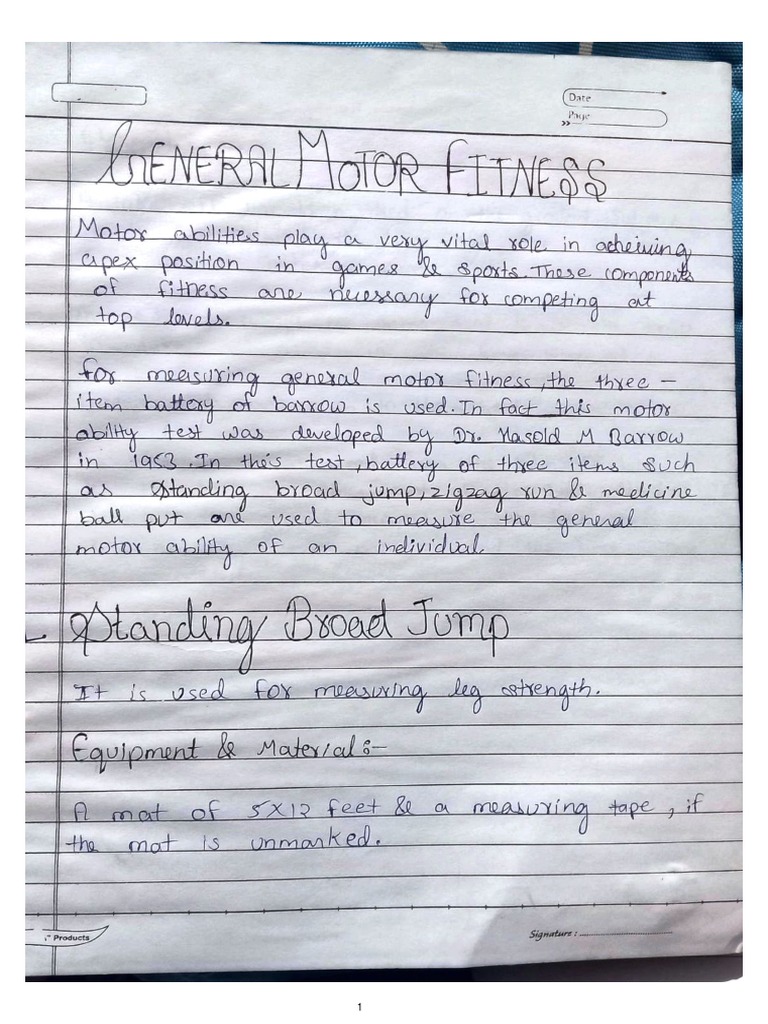 Date
Page
GENERAL MOTOR FITNESS
Motor abilities play a very vital role in acheiving
apex position in games & sports. These components
of fitness are necessary for competing at
top levels.
For measuring general motor fitness, the three -
item battery of barrow is used. In fact this motor
ability test was developed by Dr. Harold M Barrow
in 1953. In this test, battery of three items such
as standing broad jump, zigzag run & medicine
ball put are used to measure the general
motor ability of an individual.
Standing Broad Jump
It is used for measuring leg strength.
Equipment & Material :-
A mat of 5X12 feet & a measuring tape, if
the mat is unmarked.
Products
Signature :
1